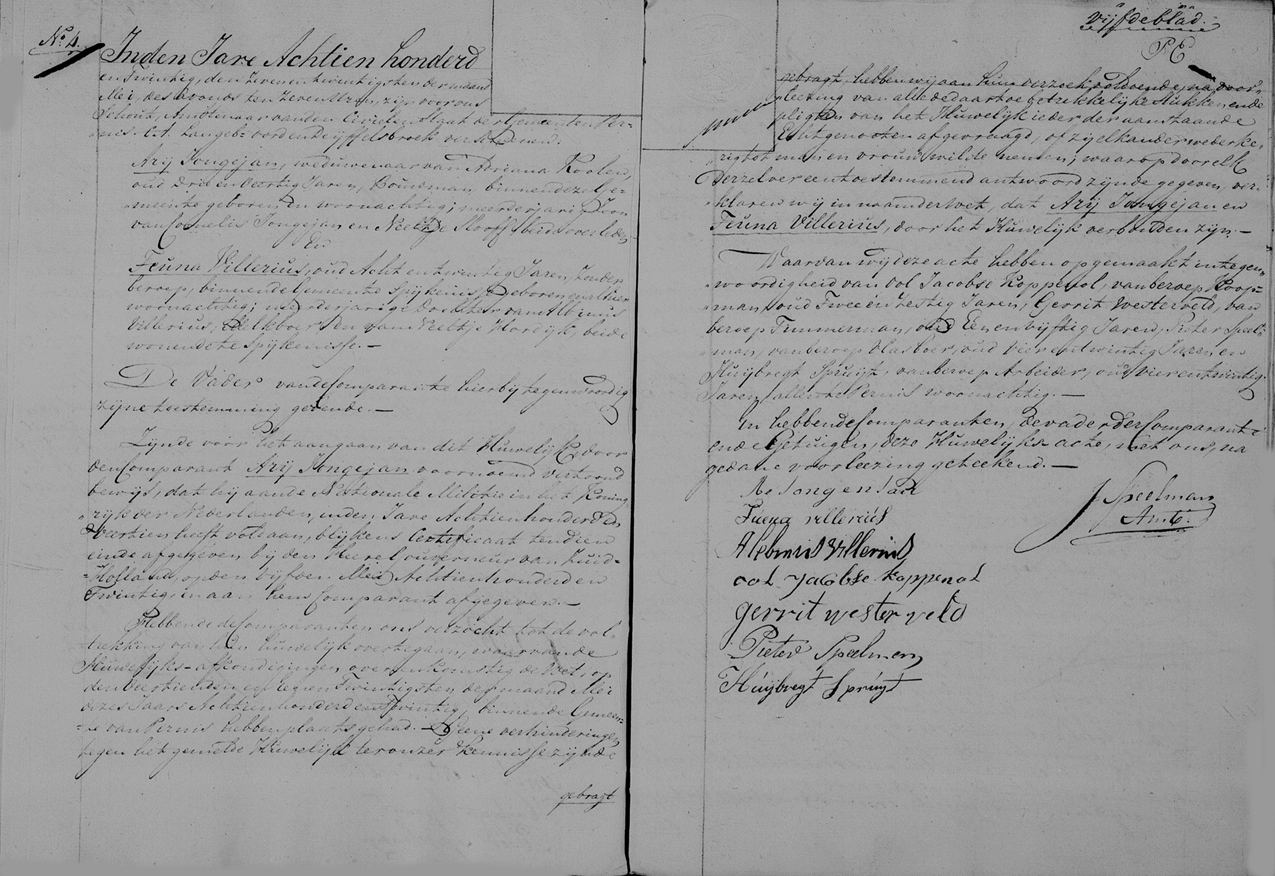 No. 4.
In den Jare Achtien honderd
en Twintig, den Zevenentwintigsten der maand
Mei, des avonds ten Zeven Uren, zijn voor ons
Schout, Ambtenaar van den Civielen Staat der Gemeenten Per-
nis
Arij Jongejan, weduwenaar van Adriana
oud Drie en Jaren, Bouwman, binnen deze Ge-
meente geboren en woonachtig; meerderjarige Zoon
van Cornelis Jongejan en beide overleden
En
Teuna Villerius, oud Acht en twintig Jaren, zonder
beroep, binnen de Gemeente Spijkenisse geboren en aldaar
woonachtig; meerderjarige Dochter van
Villerius, en van Neeltje Hordijk, beide
wonende te Spijkenisse. —
De Vader van de Comparante hierbij tegenwoordig
zijne toestemming gevende. —
Zijnde vóór het aangaan van dit Huwelijk door
den Comparant Arij Jongejan voornoemd vertoond
bewijs, dat hij aan de Nationale Militie in het Koning-
rijk der Nederlanden, in den Jare Achtienhonderd
Veertien heeft voldaan, blijkens Certificaat ten dien
einde afgegeven bij den Heere Gouverneur van Zuid-
Holland, op den vijfden Mei Achtienhonderd en
Twintig, en aan hem Comparant afgegeven. —
Hebbende de Comparanten ons verzocht tot de vol-
trekking van hun huwelijk overtegaan, waarvan de
Huwelijks-afkondigingen overeenkomstig de Wet, op
den Veertienden en Eenentwintigsten der maand Mei
dezes Jaars Achtienhonderd en Twintig, binnen de Gemeen-
te van Pernis hebben plaats gehad. — Geene verhinderingen
tegen het gemelde Huwelijk ter onzer kennisse zijnde
gebragt
Vijfde blad.
PE
gebragt, hebben wij aan hun verzoek voldoende, na voor-
lezing van alle de daartoe betrekkelijke stukken en de
pligten van het Huwelijk ieder der aanstaande
Echtgenooten afgevraagd, of zij elkander
tot man en vrouw wilde nemen; waarop door elk
derzelver een toestemmend antwoord zijnde gegeven, ver-
klaren wij in naam der Wet, dat Arij Jongejan en
Teuna Villerius, door het Huwelijk verbonden zijn. —
Waarvan wij deze acte hebben opgemaakt in tegen-
woordigheid van Ool Jacobse Koppenol, van beroep Koop-
man, oud Twee en Jaren, Gerrit Westerveld, van
beroep Timmerman, oud Een en vijftig Jaren, Pieter Speel-
man, van beroep Vlasboer, oud Vier en twintig Jaren en
Huijbregt Spruijt, van beroep Arbeider, oud Vier en twintig
Jaren, alle te Pernis woonachtig. —
En hebben de Comparanten, de vader der Comparante
en de Getuigen, deze Huwelijks acte, met ons, na
gedane voorlezing geteekend. —
Jongejan
Tuena villeriŭs
Villerius
ool Jacobse koppenol
gerrit westerveld
Pieter Speelman
Huijbregt Spruijt
J Speelman
Amb.